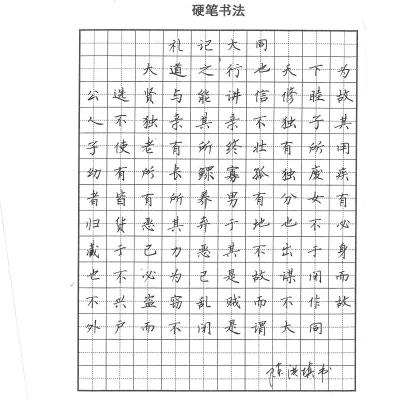 硬笔书法
礼记大同
大道之行也天下为
公选贤与能讲信修睦故
人不独亲其亲不独子其
子使老有所终壮有所用
幼有所长鳏寡孤独废疾
者皆有所养男有分女有
归货恶其弃于地也不必
藏于己力恶其不出于身
也不必为己是故谋闭而
不兴盗窃乱贼而不作故
外户而不闭是谓大同
陈洪书